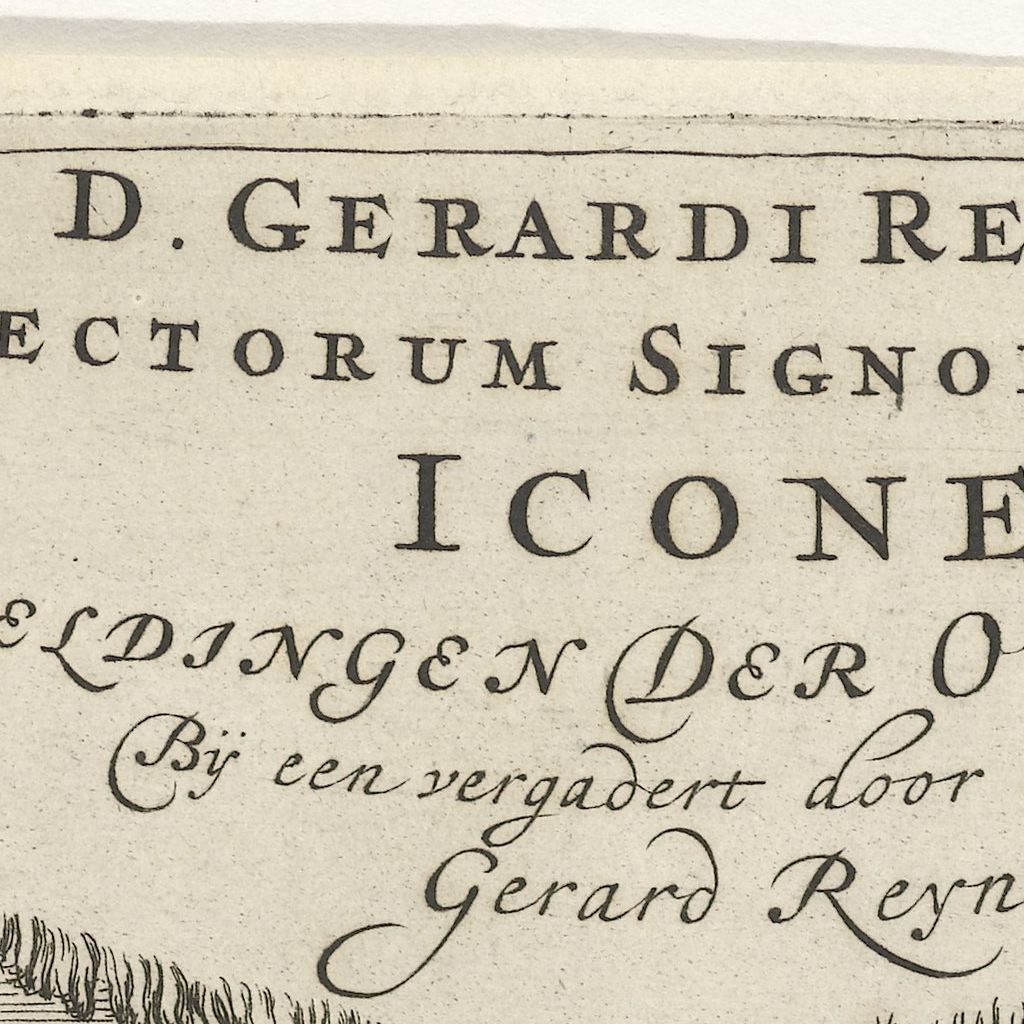 D. GERARDI RE
ECTORUM SIGNO
ICONE
ELDINGEN DER O
Bij een vergadert door
Gerard Reyn